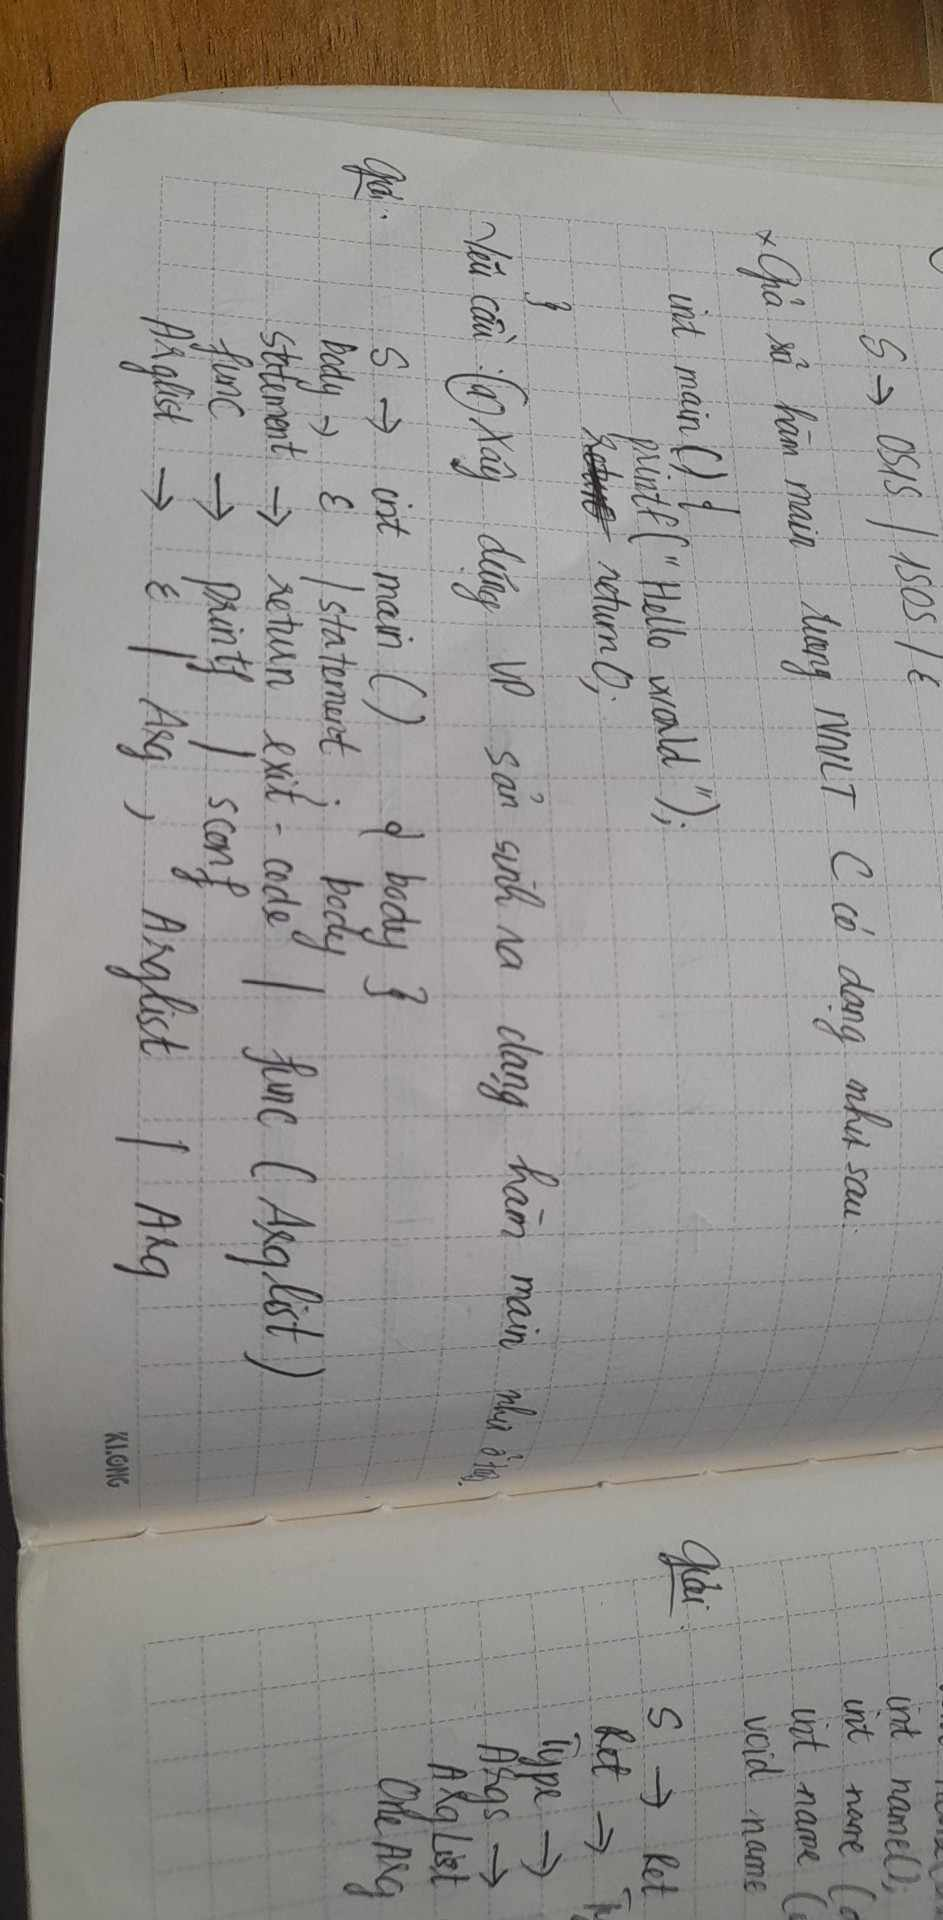 S → 0S1S | 1S0S | ε
* Giả sử hàm main trong NNLT C có dạng như sau:
int main() {
printf("Hello world");
return 0;
}
Yêu cầu: (a) Xây dựng VP sản sinh ra dạng hàm main như ở trên.
Giải:
S → int main () { body }
body → ε | statement ; body
statement → return exit-code | func (Arglist)
func → printf | scanf
Arglist → ε | Arg , Arglist | Arg
KLONG
int name();
int name (
int name (
void name
Giải:
S → Ret
Ret →
Type →
Args →
ArgList
OneArg